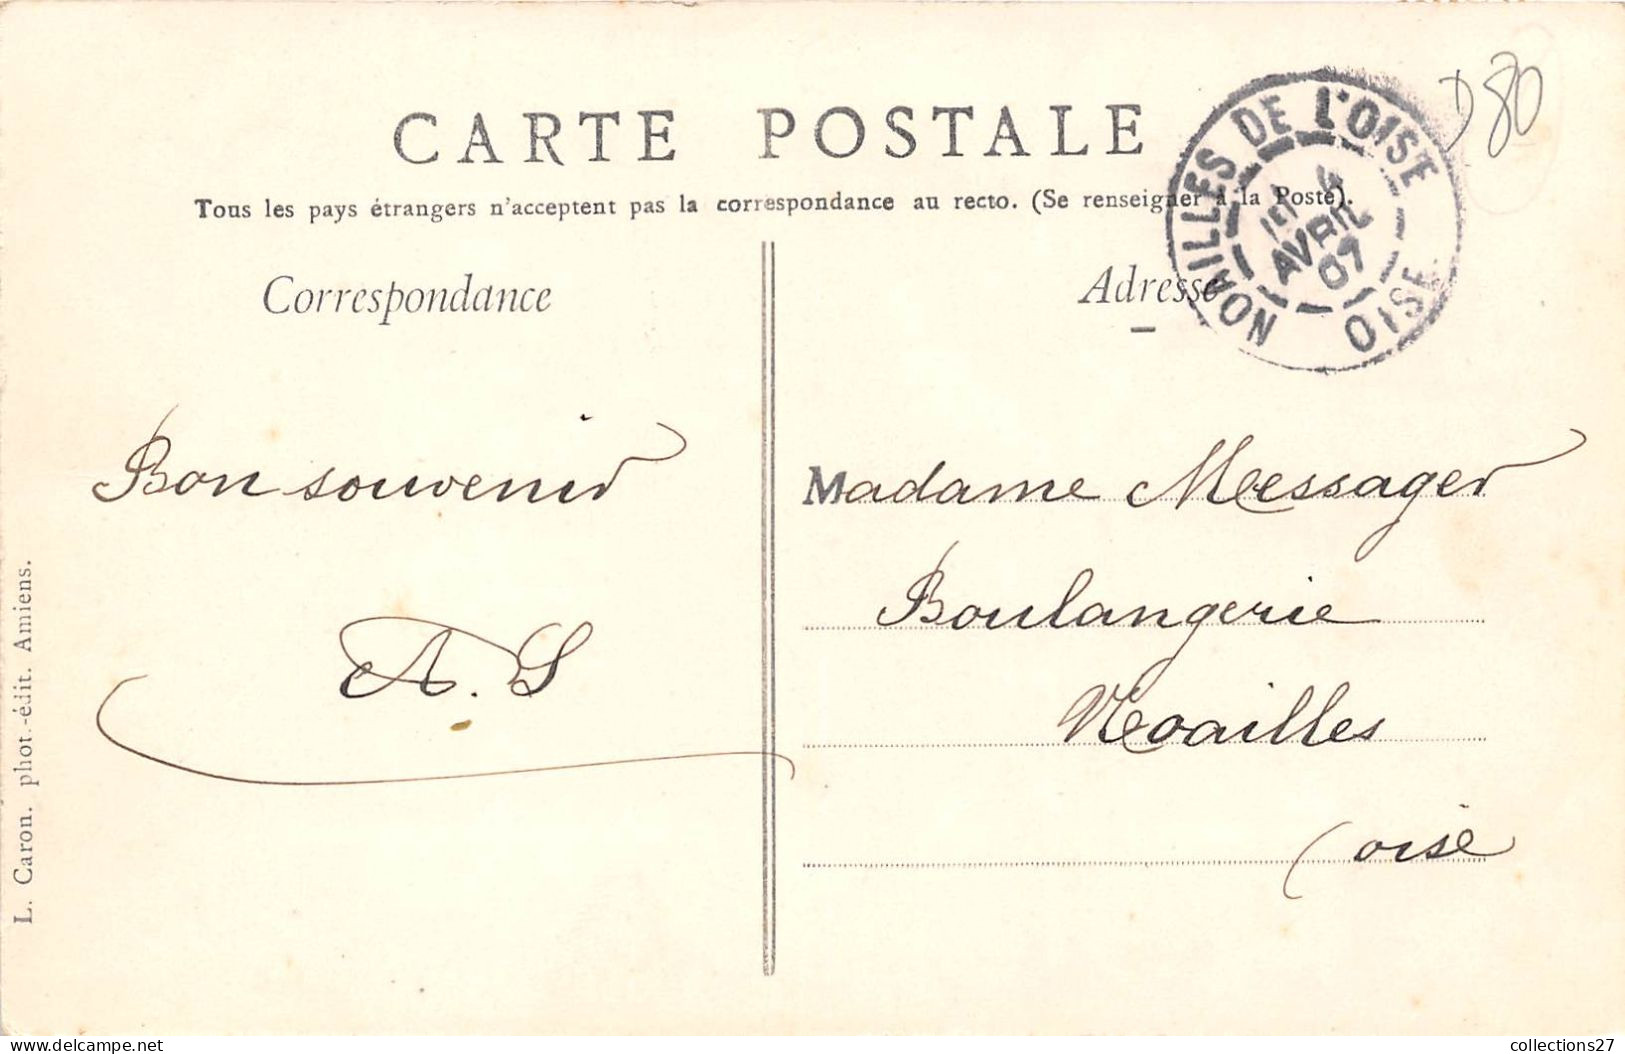 CARTE POSTALE
D80
Tous les pays étrangers n'acceptent pas la correspondance au recto. (Se renseigner à la Poste).
NOAILLES DE L'OISE
4
AVRIL
07
OISE
Correspondance
Adresse
Bon souvenir
A. S
Madame Messager
Boulangerie
Noailles
(oise
L. Caron. phot.-édit. Amiens.
www.delcampe.net
collections27